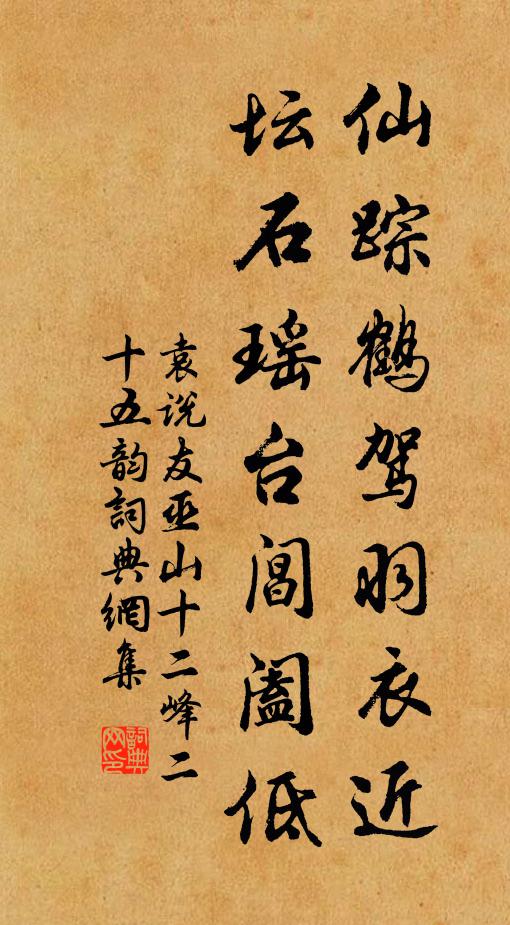 仙踪鹤驾羽衣近
坛石瑶台阊阖低
袁说友巫山十二峰二
十五韵詞典網集
詞典
网印